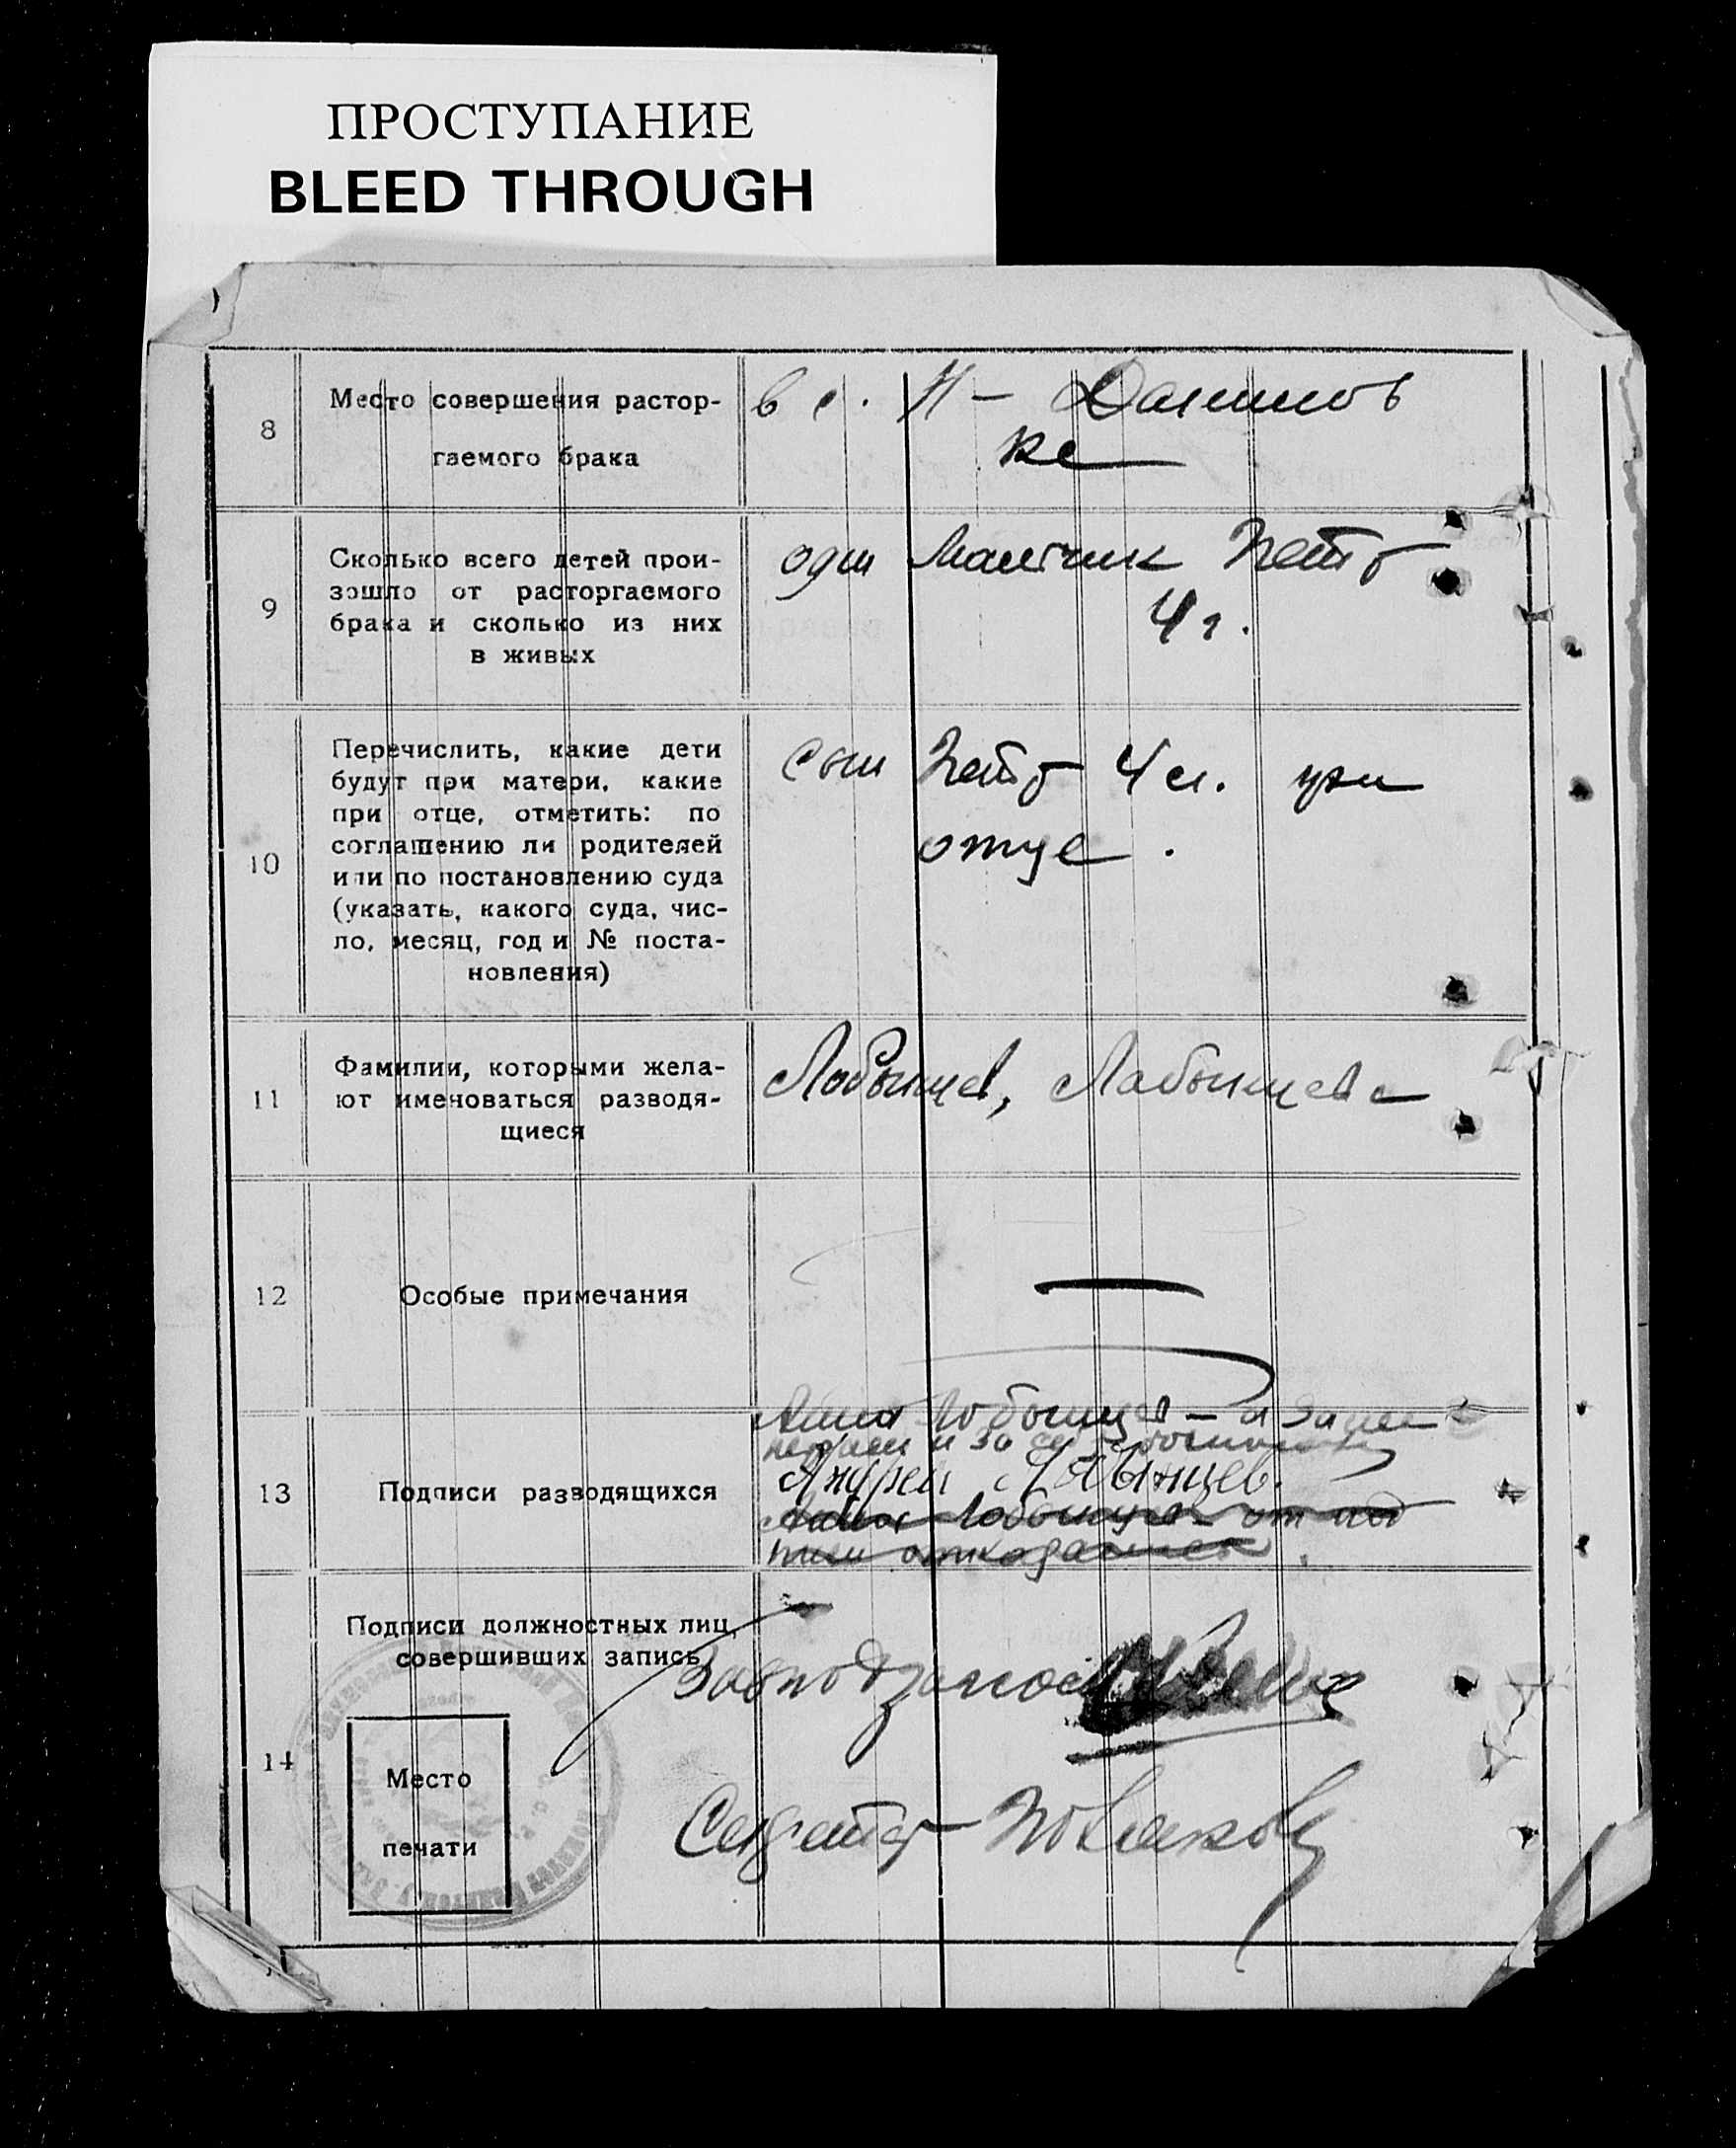 ПРОСТУПАНИЕ
BLEED THROUGH
8
Место совершения растор-
гаемого брака
в с. Н-Даниловке
9
Сколько всего детей прои-
зошло от расторгаемого
брака и сколько из них
в живых
один мальчик Петр
4 г.
10
Перечислить, какие дети
будут при матери, какие
при отце, отметить: по
соглашению ли родителей
или по постановлению суда
(указать, какого суда, чис-
ло, месяц, год и № поста-
новления)
сын Петр 4 л. при
отце.
11
Фамилии, которыми жела-
ют именоваться разводя-
щиеся
Лобынцев, Лабынцева
12
Особые примечания
—
13
Подписи разводящихся
Анна Лобынцев
Андрей Лабынцев.
Анна Лобынцева от под
писи отказалась.
14
Подписи должностных лиц,
совершивших запись
Место
печати
Секретарь